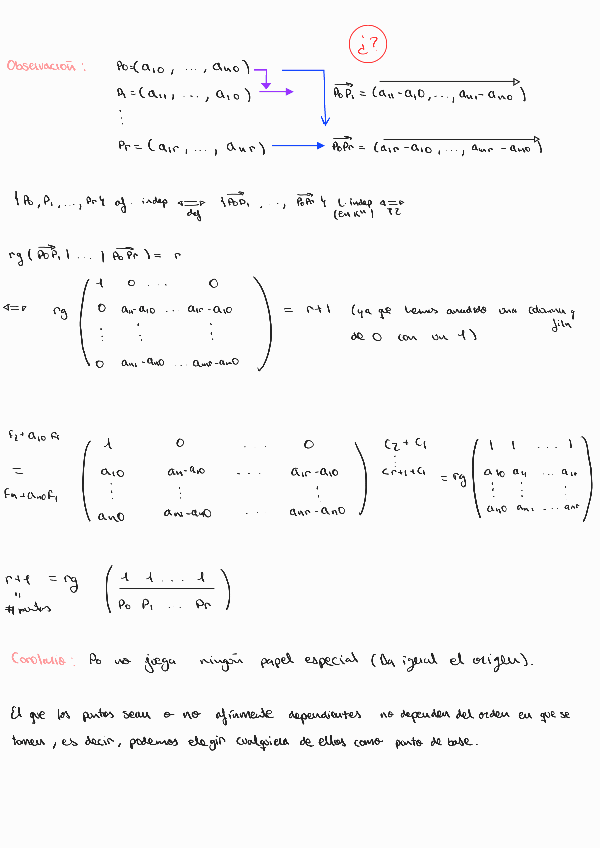 ¿?
Observación: P0=(a10, ..., an0)
P1=(a11, ..., a10) P0P1 = (a11-a10, ..., an1-an0)
⋮
Pr = (a1r, ..., anr) P0Pr = (a1r-a10, ..., anr-an0)
{P0, P1, ..., Pr} af. indep ⟺ def {P0P1, .., P0Pr} l. indep (en Kⁿ) ⟺
rg (P0P1 | ... | P0Pr) = r
⟺ rg ( 1 0 ... 0
0 a11-a10 .. a1r-a10 = r+1 (ya que hemos añadido una columna y fila
⋮ ⋮ ⋮ de 0 con un 1)
0 an1-an0 ... anr-an0 )
F2+a10 F1 ( 1 0 .. 0 ) C2+C1 ( 1 1 ... 1 )
= a10 a11-a10 ... a1r-a10 ⋮ Cr+1+C1 = rg a10 a11 ... a1r
Fn+an0F1 ⋮ ⋮ ⋮
an0 an1-an0 .. anr-an0 an0 an1 ... anr
r+1 = rg ( 1 1 ... 1 )
" P0 P1 ... Pr
# puntos
Corolario: P0 no juega ningún papel especial (Da igual el origen).
El que los puntos sean o no afínmente dependientes no dependen del orden en que se
tomen, es decir, podemos elegir cualquiera de ellos como punto de base.